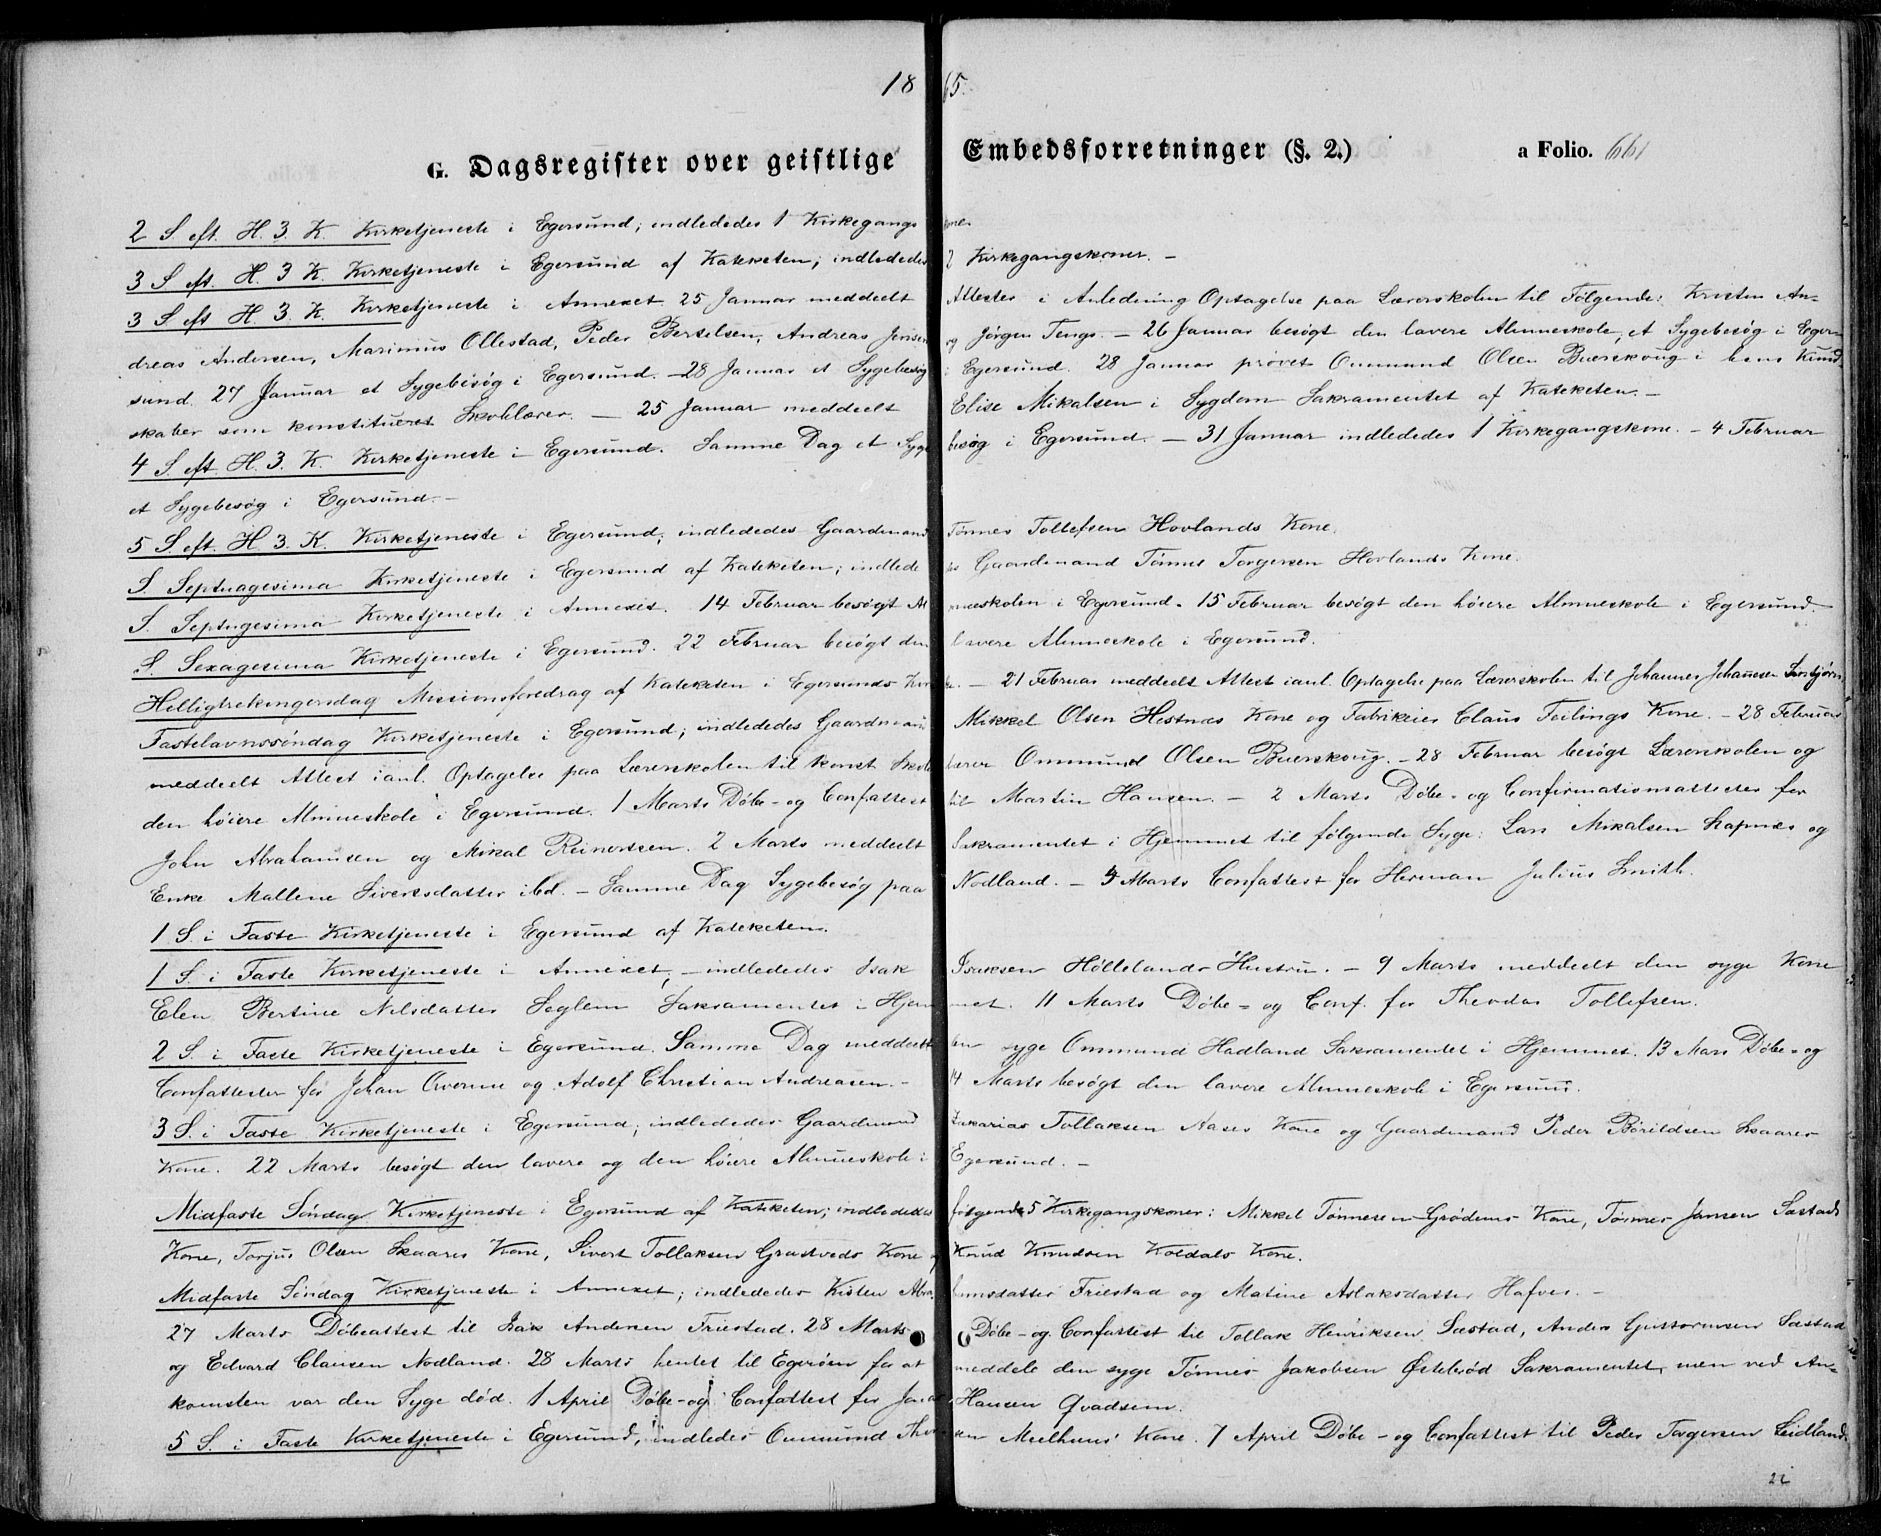 1865.
G. Dagsregister over geistlige Embedsforretninger (§. 2.) a Folio. 661
2 S. eft. H. 3. K. Kirketjeneste i Egersund; indlededes 1 Kirkegangskone.
3 S. eft. H. 3 K. Kirketjeneste i Egersund af Kateketen; indlededes 2 Kirkegangskoner. –
3 S. eft H. 3. K. Kirketjeneste i Annexet. 25 Januar meddeelt Attester i Anledning Optagelse paa Lærerskolen til Følgende: Kristen An-
dreas Andersen, Marinius Ollestad, Peder Bertelsen, Andreas Jensen og Jörgen Tengs. – 26 Januar besøgt den lavere Almueskole, et Sygebesøg i Eger-
sund. 27 Januar et Sygebesøg i Egersund. – 28 Januar et Sygebesøg i Egersund. 28 Januar prøvet Ommund Olsen Buerskoug i hans Kund-
skaber som konstitueret Skolelærer. – 25 Januar meddeelt Elise Mikalsen i Sygdom Sakramentet af Kateketen. –
4 S. eft. H. 3. K. Kirketjeneste i Egersund. Samme Dag et Sygebesøg i Egersund. – 31 Januar indlededes 1 Kirkegangskone. – 4 Februar
et Sygebesøg i Egersund. –
5 S. eft. H 3. K. Kirketjeneste i Egersund; indlededes Gaardmand Tønnes Tollefsen Hovlands Kone.
S. Septuagesima Kirketjeneste i Egersund af Kateketen; indlededes Gaardmand Tønnes Torgersen Hovlands Kone.
S. Septugesima Kirketjeneste i Annexet. 14 Februar besøgt Almueskolen i Egersund. 15 Februar besøgt den høiere Almueskole i Egersund. –
S. Sexagesima Kirketjeneste i Egersund. 22 Februar besøgt den lavere Almueskole i Egersund.
Helligtrekongersdag Missionsforedrag af Kateketen i Egersunds Kirke. – 21 Februar meddeelt Attest ianl. Optagelse paa Lærerskolen til Johannes Johannesen
Fastelavnssøndag Kirketjeneste i Egersund; indlededes Gaardmand Mikkel Olsen Hestnæs Kone og Fabrikeier Claus Feilings Kone. – 28 Februar
meddeelt Attest ianl. Optagelse paa Lærerskolen til konst Skolelærer Ommund Olsen Buerskoug. – 28 Februar besøgt Lærerskolen og
den høiere Almueskole i Egersund. 1 Marts Døbe- og Confattest til Martin Hansen. – 2 Marts Døbe- og Confirmationsattester for
John Abrahamsen og Mikal Reinertsen. 2 Marts meddeelt Sakramentet i Hjemmet til følgende Syge: Lars Mikalsen Lapnæs og
Enke Mallene Sivertsdatter ibd. – Samme Dag Sygebesøg paa Nodland. – 4 Marts Confattest for Herman Julius Smith.
1 S. i Faste Kirketjeneste i Egersund af Kateketen.
1 S. i Faste Kirketjeneste i Annexet, – indlededes Isak Isaksen Høllelands Hustru. – 9 Marts meddeelt den syge Kone
Elen Bertine Nilsdatter Seglem Sakramentet i Hjemmet. 11 Marts Døbe- og Conf. for Theodor Tollefsen.
2 S. i Faste Kirketjeneste i Egersund. Samme Dag meddeelt den syge Ommund Hadland Sakramentet i Hjemmet. 13 Mars Døbe- og
Confattester for Johan og Adolf Christian Andreasen. – 14 Marts besøgt den lavere Almueskole i Egersund.
3 S. i Faste Kirketjeneste i Egersund; indlededes Gaardmand Zakarias Tollaksen Aases Kone og Gaardmand Peder Børildsen Skaares
Kone. 22 Marts besøgt den lavere og den høiere Almueskole i Egersund. –
Midfaste Søndag Kirketjeneste i Egersund af Kateketen; indlededes følgende 5 Kirkegangskoner: Mikkel Tønnesen Grødems Kone, Tønnes Jansen Sæstads
Kone, Torjus Olsen Skaares Kone, Sivert Tollaksen Grastveds Kone og Knud Knudsen Koldals Kone.
Midfaste Søndag Kirketjeneste i Annexet; indlededes Kisten Abrahamsdatter Friestad og Matine Aslaksdatter Hafver. –
27 Marts Døbeattest til Isak Andersen Friestad. 28 Marts Døbe- og Confattest til Tollak Henriksen Sæstad, Anders Guttormsen Sæstad
og Edvard Clausen Nodland. 28 Marts hentet til Egerøen for at meddele den syge Tønnes Jakobsen Østebrød Sakramentet, men ved An-
komsten var den Syge död. 1 April Døbe- og Confattest for Jonas Hansen Qvadsem.
5 S. i Faste Kirketjeneste i Egersund, indledes Ommund Thorsen Meelhuus' Kone. 7 April Døbe- og Confattest til Peder Torgersen Leidland.
22